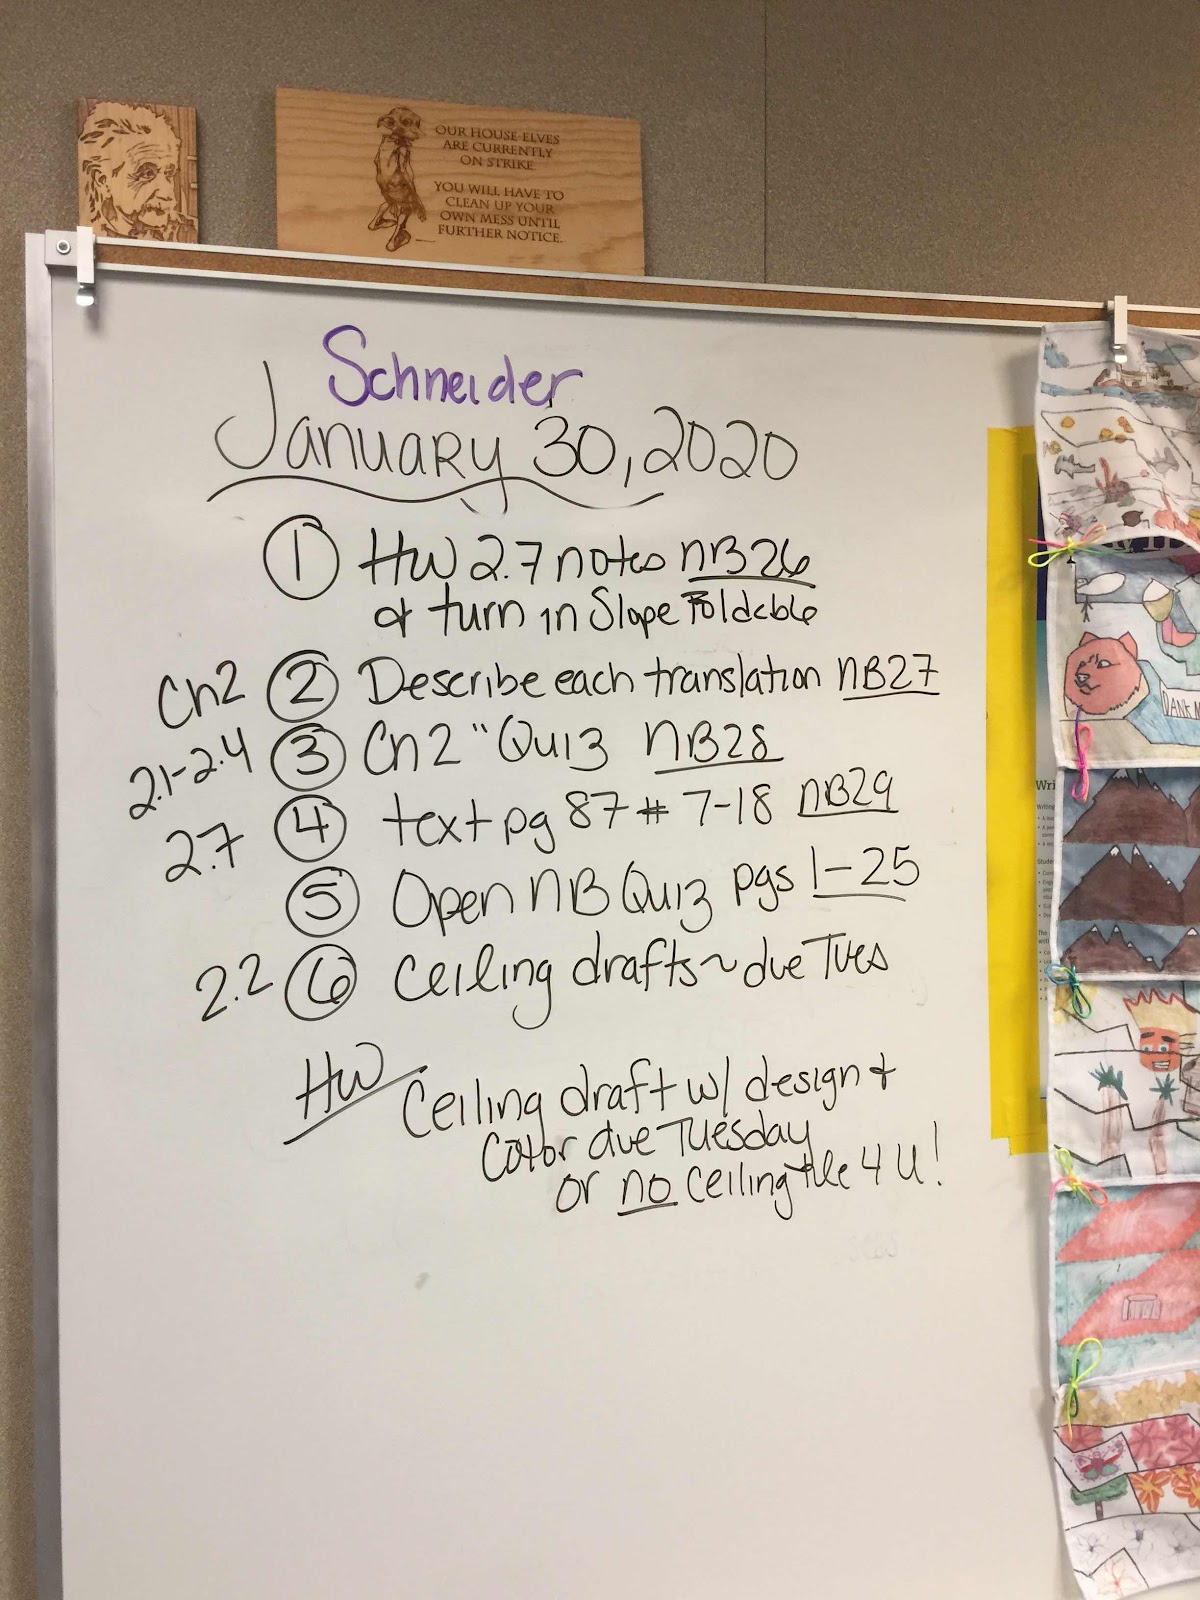 OUR HOUSE ELVES
ARE CURRENTLY
ON STRIKE.
YOU WILL HAVE TO
CLEAN UP YOUR
OWN MESS UNTIL
FURTHER NOTICE.
Schneider
January 30, 2020
① HW 2.7 notes NB26
& turn in Slope Foldable
Ch2 ② Describe each translation NB27
2.1-2.4 ③ Ch 2 "Quiz NB28
2.7 ④ text pg 87 # 7-18 NB29
⑤ Open NB Quiz pgs 1-25
2.2 ⑥ Ceiling drafts ~ due Tues
HW Ceiling draft w/ design &
Color due Tuesday
or no ceiling tile 4 U!